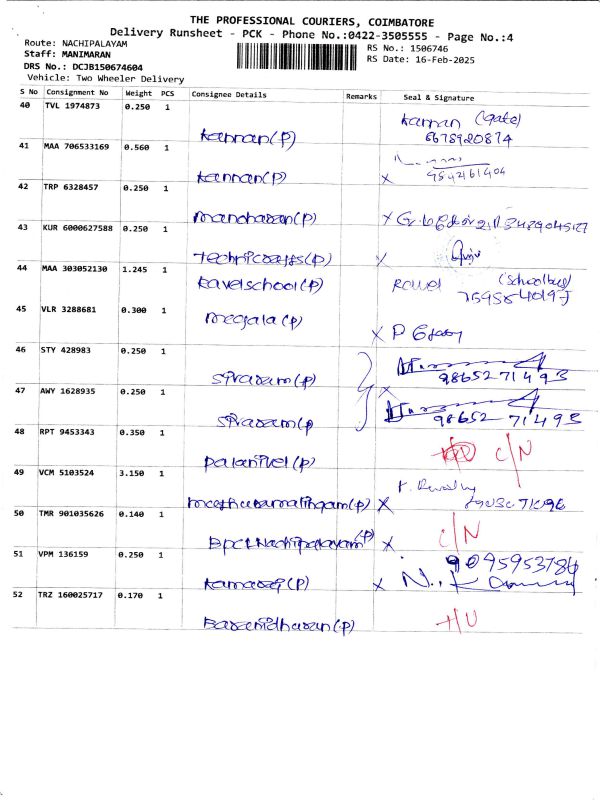 THE PROFESSIONAL COURIERS, COIMBATORE
Delivery Runsheet - PCK - Phone No.:0422-3505555 - Page No.:4
Route: NACHIPALAYAM
RS No.: 1506746
Staff: MANIMARAN
RS Date: 16-Feb-2025
DRS No.: DCJB150674604
Vehicle: Two Wheeler Delivery
S No Consignment No Weight PCS Consignee Details Remarks Seal & Signature
40 TVL 1974873 0.250 1
kannan(p) kannan (Gate)
41 MAA 706533169 0.560 1
kannan(p) X
42 TRP 6328457 0.250 1
manoharan(p) X
43 KUR 6000627588 0.250 1
X
44 MAA 303052130 1.245 1
kavelschool(p) (School bus)
45 VLR 3288681 0.300 1
megala(p) X
46 STY 428983 0.250 1
sivaram(p) 98652 71493
47 AWY 1628935 0.250 1
sivaram(p 98652 71493
48 RPT 9453343 0.350 1
palanivel(p) C/N
49 VCM 5103524 3.150 1
muthuramalingam(p) X
50 TMR 901035626 0.140 1
BPCL Nachipalayam(p) X C/N
51 VPM 136159 0.250 1
X 9095953786
52 TRZ 160025717 0.170 1